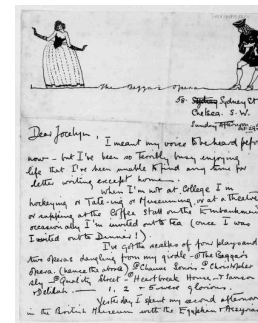 The Beggar's Opera
58. Sydney St
Chelsea. S.W.
Sunday afternoon
Dear Jocelyn,
I meant my voice to be heard before
now – but I've been so terribly busy enjoying
life that I've been unable to find any time for
letter writing except home.
When I'm not at College I'm
hockeying or Tate-ing or Museuming, or at a theatre
or supping at the Coffee Stall on the Embankment
occasionally I'm invited out to tea (once I was
invited out to Dinner!)
I've got the scalps of four plays and
two operas dangling from my girdle – The Beggar's
Opera. (hence the above) Charles Louis – Christopher
Sly – Quality Street – Heartbreak House – + Samson
+ Delilah —— 1, 2 + 5 were glorious.
Yesterday I spent my second afternoon
in the British Museum with the Egyptian + Assyrian